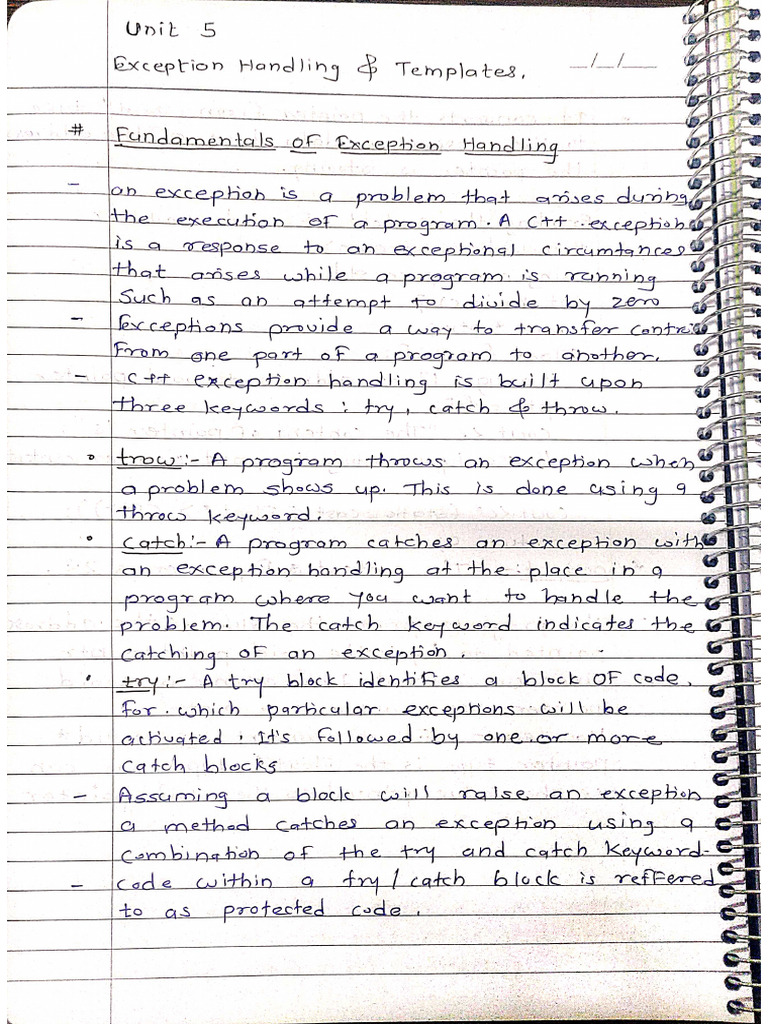 Unit 5
Exception Handling & Templates. _/_/_
# Fundamentals of Exception Handling
- an exception is a problem that arises during
the execution of a program. A C++ exception
is a response to an exceptional circumtances
that arises while a program is running
Such as an attempt to divide by zero
- Exceptions provide a way to transfer contr
From one part of a program to another.
- C++ exception handling is built upon
three keywords : try, catch & throw.
• trow :- A program throws an exception when
a problem shows up. This is done using a
throw keyword.
• Catch :- A program catches an exception with
an exception handling at the place in a
program where you want to handle the
problem. The catch keyword indicates the
catching of an exception.
• try :- A try block identifies a block of code,
for which particular exceptions will be
activated. It's followed by one or more
catch blocks
- Assuming a block will raise an exception
a method catches an exception using a
combination of the try and catch keyword-
- code within a try/catch block is reffered
to as protected code.